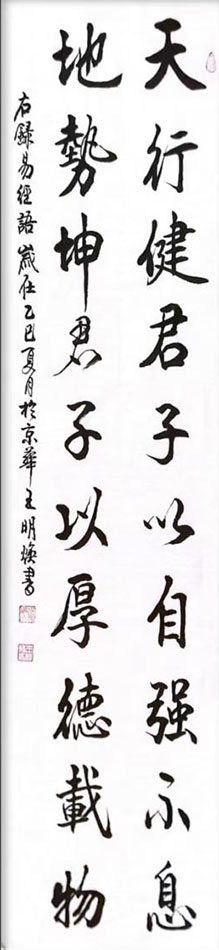 天行健君子以自强不息
地勢坤君子以厚德載物
右録易經語歲在乙巳夏月於京華王明煥書